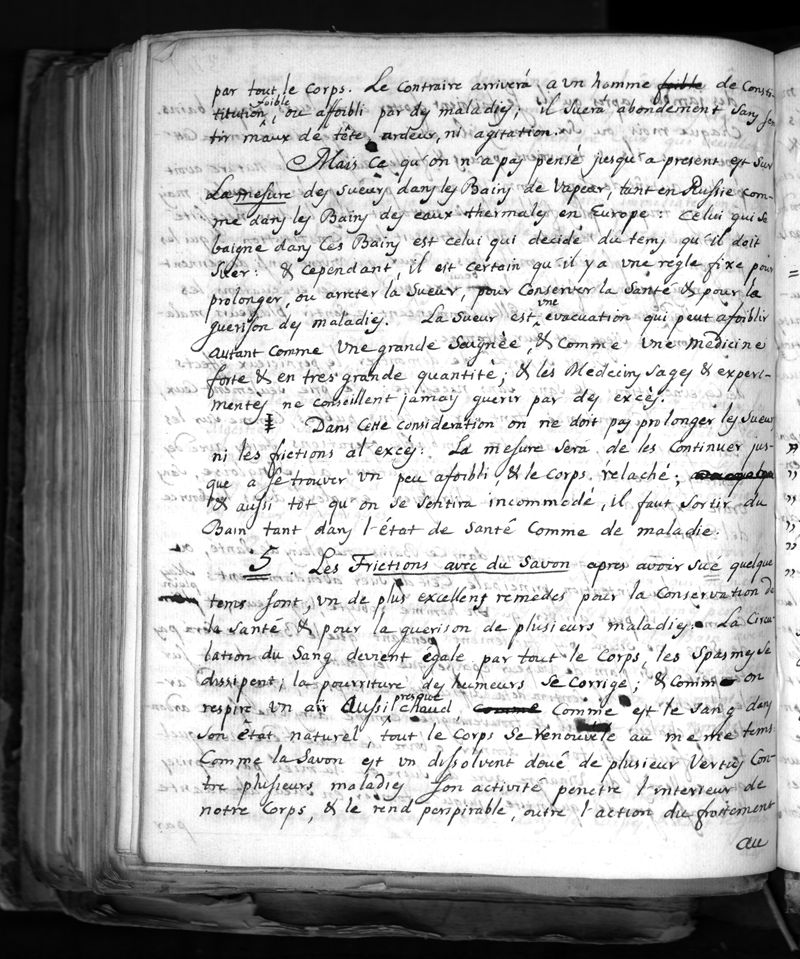 par tout le corps. Le contraire arrivera a un homme foible de Consti-
titution foible, ou affoibli par des maladies; il suera abondement sans sen
tir maux de tête, ardeur, ni agitation.
Mais ce qu'on n'a pas pensé jusqu'a present est sur
La mesure des sueurs dans les Bains de Vapeur, tant en Russie com-
me dans les Bains des eaux thermales en Europe: Celui qui se
baigne dans ces Bains est celui qui decide du tems qu'il doit
suer: & cependant, il est certain qu'il y a une regle fixe pour
prolonger, ou arreter la Sueur, pour Conserver la Santé & pour la
guerison des maladies. La Sueur est une evacuation qui peut afoiblir
autant comme une grande Saignèe, & Comme une medicine
forte & en tres grande quantité; & les Medecins sages & experi-
mentés ne conseillent jamais guerir par des excès.
Dans Cette consideration on ne doit pas prolonger les sueurs
ni les frictions al excès. La mesure sera de les Continuer jus-
que a se trouver un peu afoibli, & le Corps relaché;
& aussi tot qu'on se sentira incommodé, il faut sortir du
Bain tant dans l'état de Santé Comme de maladie.
5. Les Frictions avec du Savon apres avoir sué quelque
tems sont, un de plus excellens remedes pour la Conservation de
la Santé & pour la guerison de plusieurs maladies. La Circu-
lation du Sang devient égale par tout le Corps, les Spasmes se
dissipent; la pourriture des humeurs se Corrige; & Comme on
respire un air aussi presque chaud comme Comme est le sang dans
son état naturel, tout le Corps se renouvele au meme tems
Comme la Savon est un dissolvent doué de plusieur Vertus Con-
tre plusieurs maladies son activité penetre l'interieur de
notre Corps, & le rend perspirable, outre l'action du frottement
au